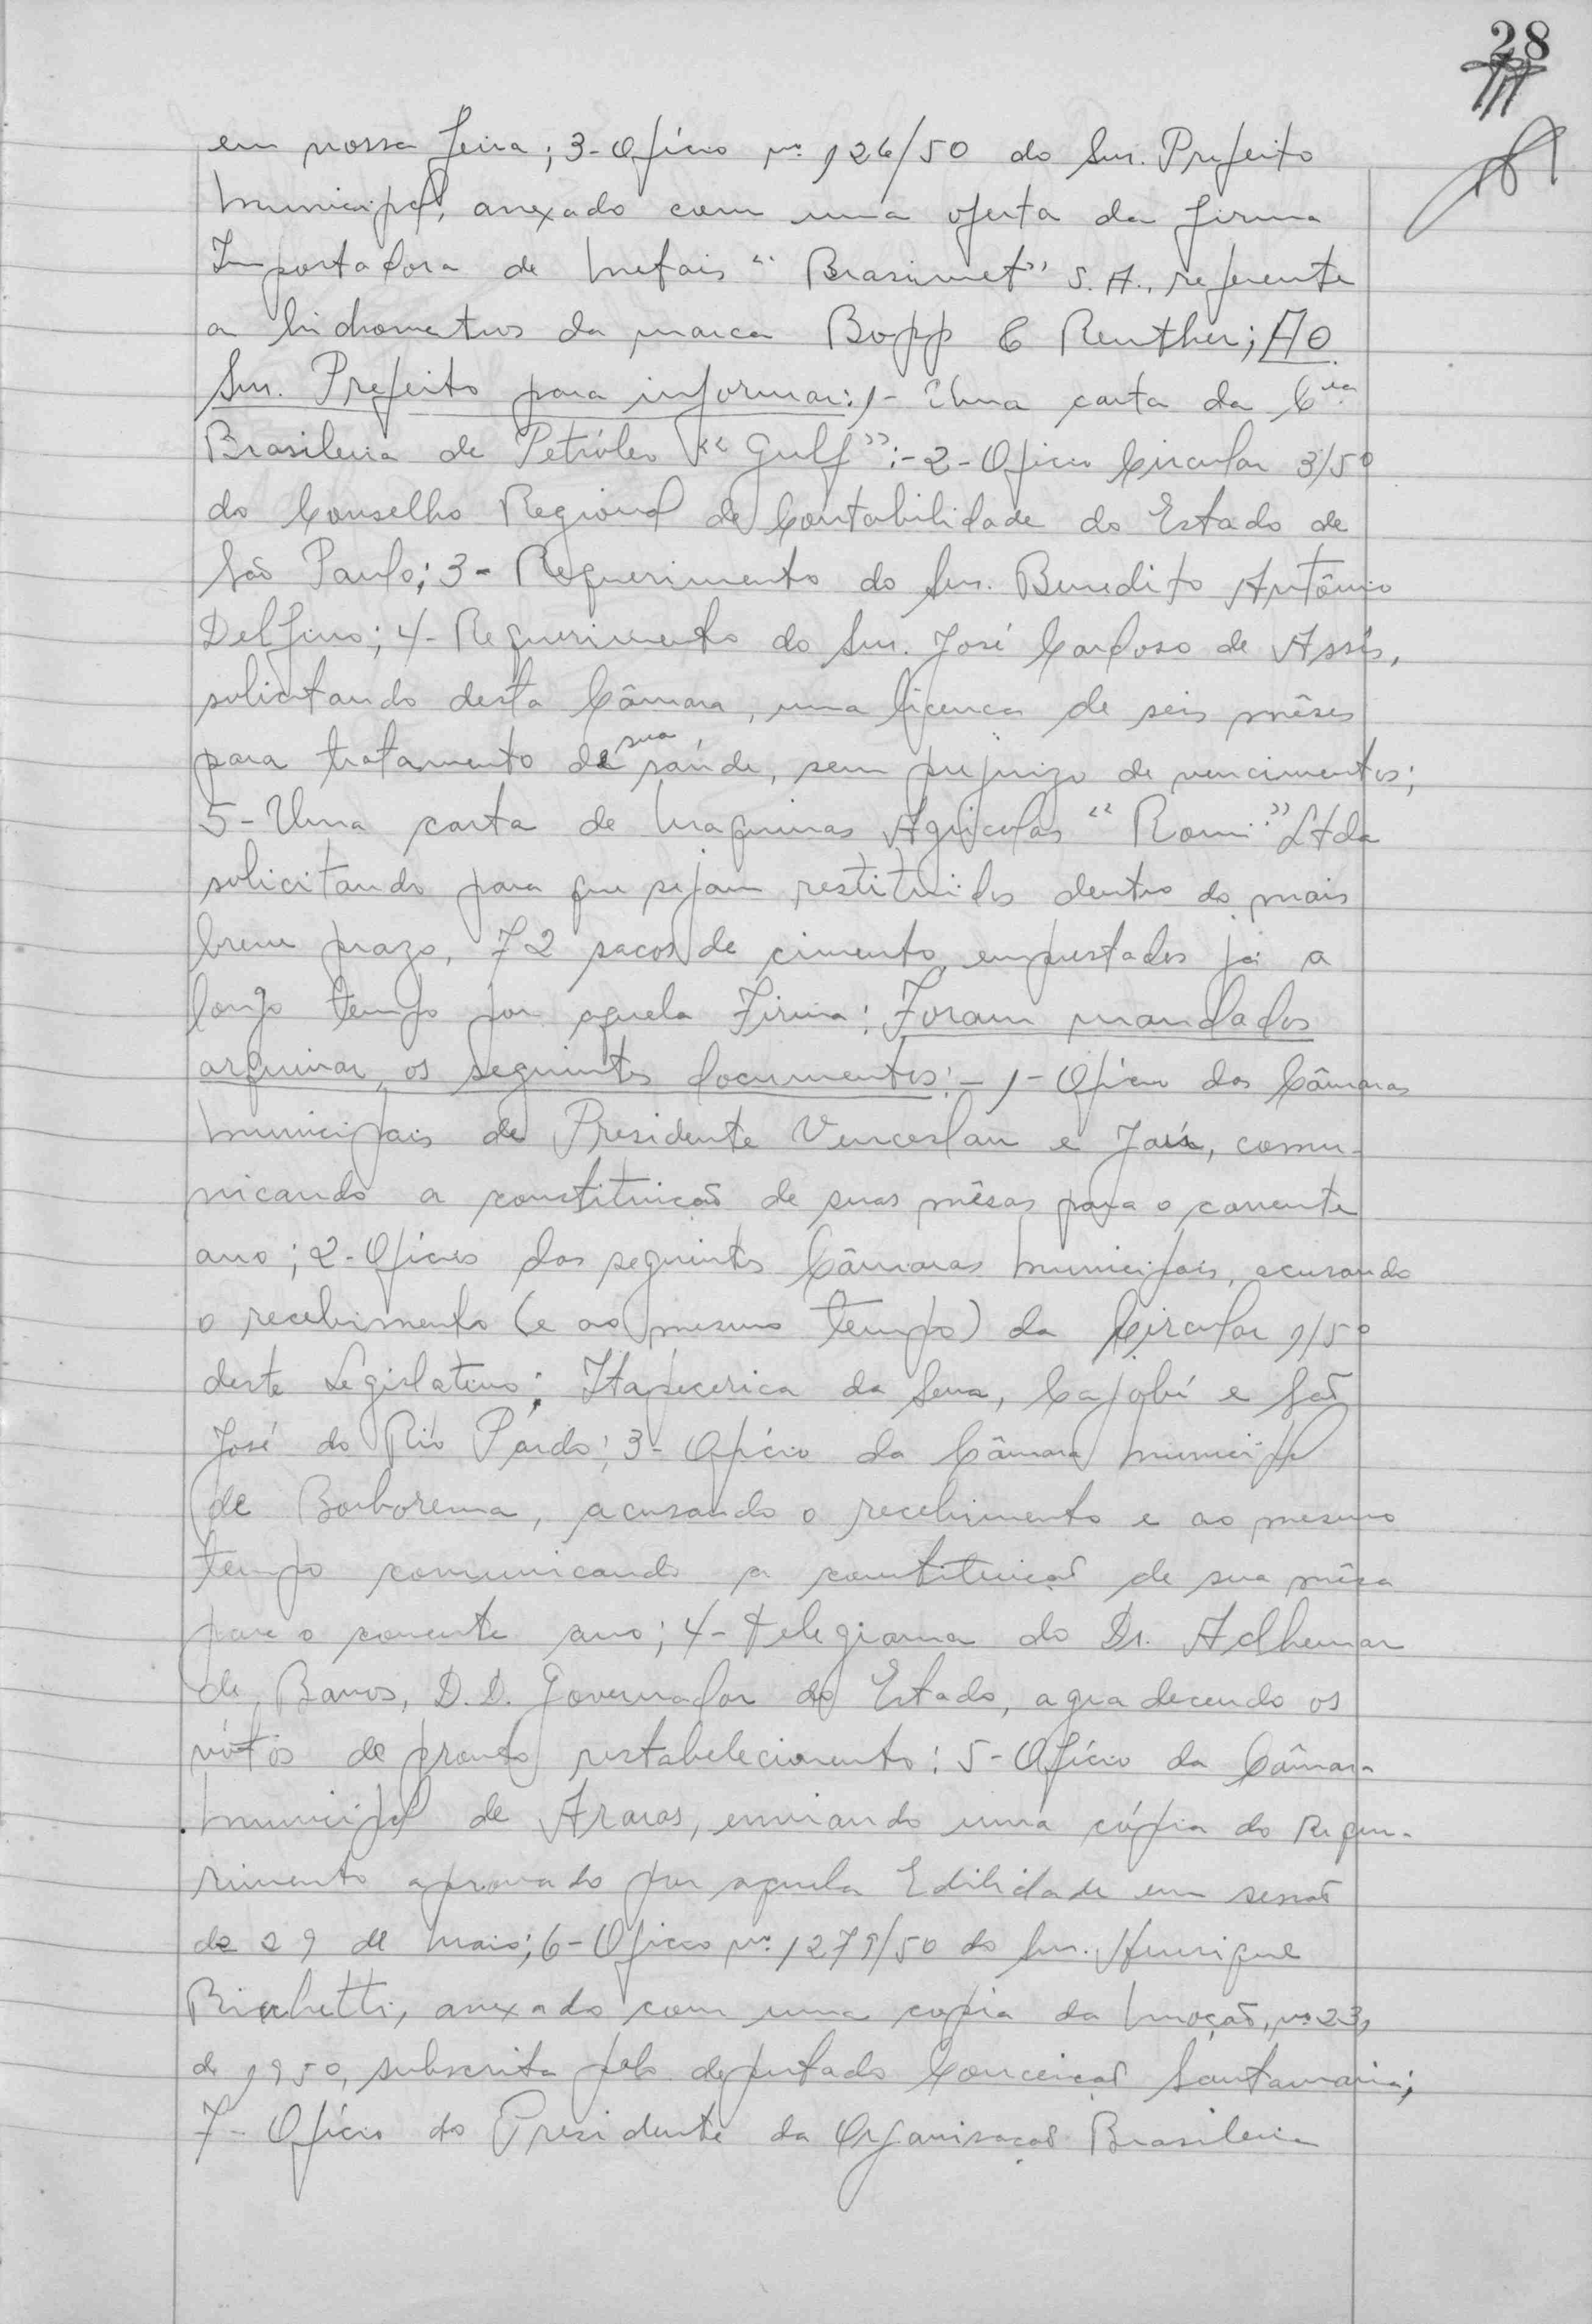 28
em nossa feira; 3- Ofício nº 126/50 do Snr. Prefeito
Municipal, anexado com uma oferta da firma
Importadora de Metais "Brasimet" S.A., referente
a hidrometros da marca Bopp & Reuther; Ao
Snr. Prefeito para informar: 1- Uma carta da Cia
Brasileira de Petróleo "Gulf":- 2- Oficio Circular 3/50
do Conselho Regional de Contabilidade do Estado de
São Paulo; 3- Requerimento do Snr. Benedito Antônio
Delfino; 4- Requerimento do Snr. José Cardoso de Assis,
solicitando desta Câmara, uma licenca de seis mêses
para tratamento de sua saúde, sem prejuizo de vencimentos;
5- Uma carta de Maquinas Agricolas "Romi" Ltda
solicitando para que sejam restituidos dentro do mais
breve prazo, 72 sacos de cimento, emprestados já a
longo tempo por aquela Firma: Foram mandados
arquivar, os seguintes documentos:- 1- Ofício das Câmaras
Municipais de Presidente Venceslau e Jaú, comu-
nicando a constituicão de suas mêsas para o corrente
ano; 2- Ofícios das seguintes Câmaras Municipais, acusando
o recebimento (e ao mesmo tempo) da Circular 1/50
deste Legislativo: Itapecerica da Serra, Cajobí e São
José do Rio Pardo; 3- Ofício da Câmara Municipal
de Borborema, acusando o recebimento e ao mesmo
tempo comunicando a constituicão de sua mêsa
para o corrente ano; 4- telegrama do Dr. Adhemar
de Barros, D.D. Governador do Estado, agradecendo os
vótos de pronto restabelecimento: 5- Ofício da Câmara
Municipal de Araras, enviando uma cópia do Reque-
rimento aprovado por aquela Edilidade em sessão
de 29 de Maio; 6- Oficio nº 1279/50 do Snr. Henrique
Richetti, anexado com uma copia da Moção, nº 23,
de 1950, subscrita pelo deputado Conceicão Santamaria;
7- Ofício do Presidente da Organisacão Brasileira